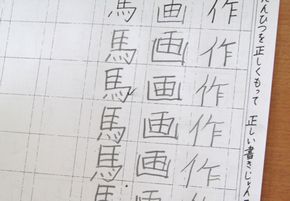 んぴつを正しくもって 正しい書きじゅん
作作作作作作
画画画画画画
馬馬馬馬馬馬